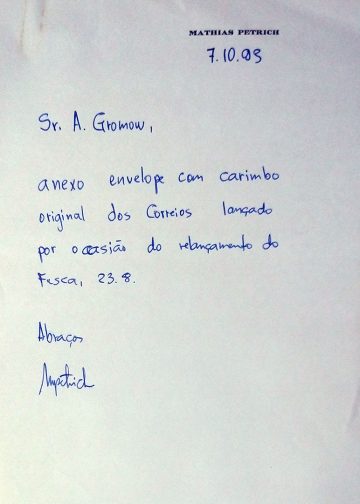 MATHIAS PETRICH
7.10.93
Sr. A. Gromow,
anexo envelope com carimbo
original dos Correios lançado
por ocasião do relançamento do
Fusca, 23.8.
Abraços
MPetrich